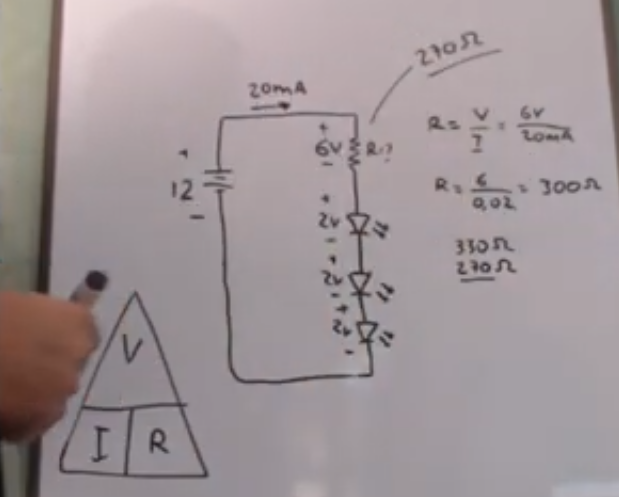 270Ω
20mA
+
12
-
+
6V
-
R=?
+
2v
-
+
2v
-
+
2v
-
R = V/I = 6V/20mA
R = 6/0,02 = 300Ω
330Ω
270Ω
V
I R